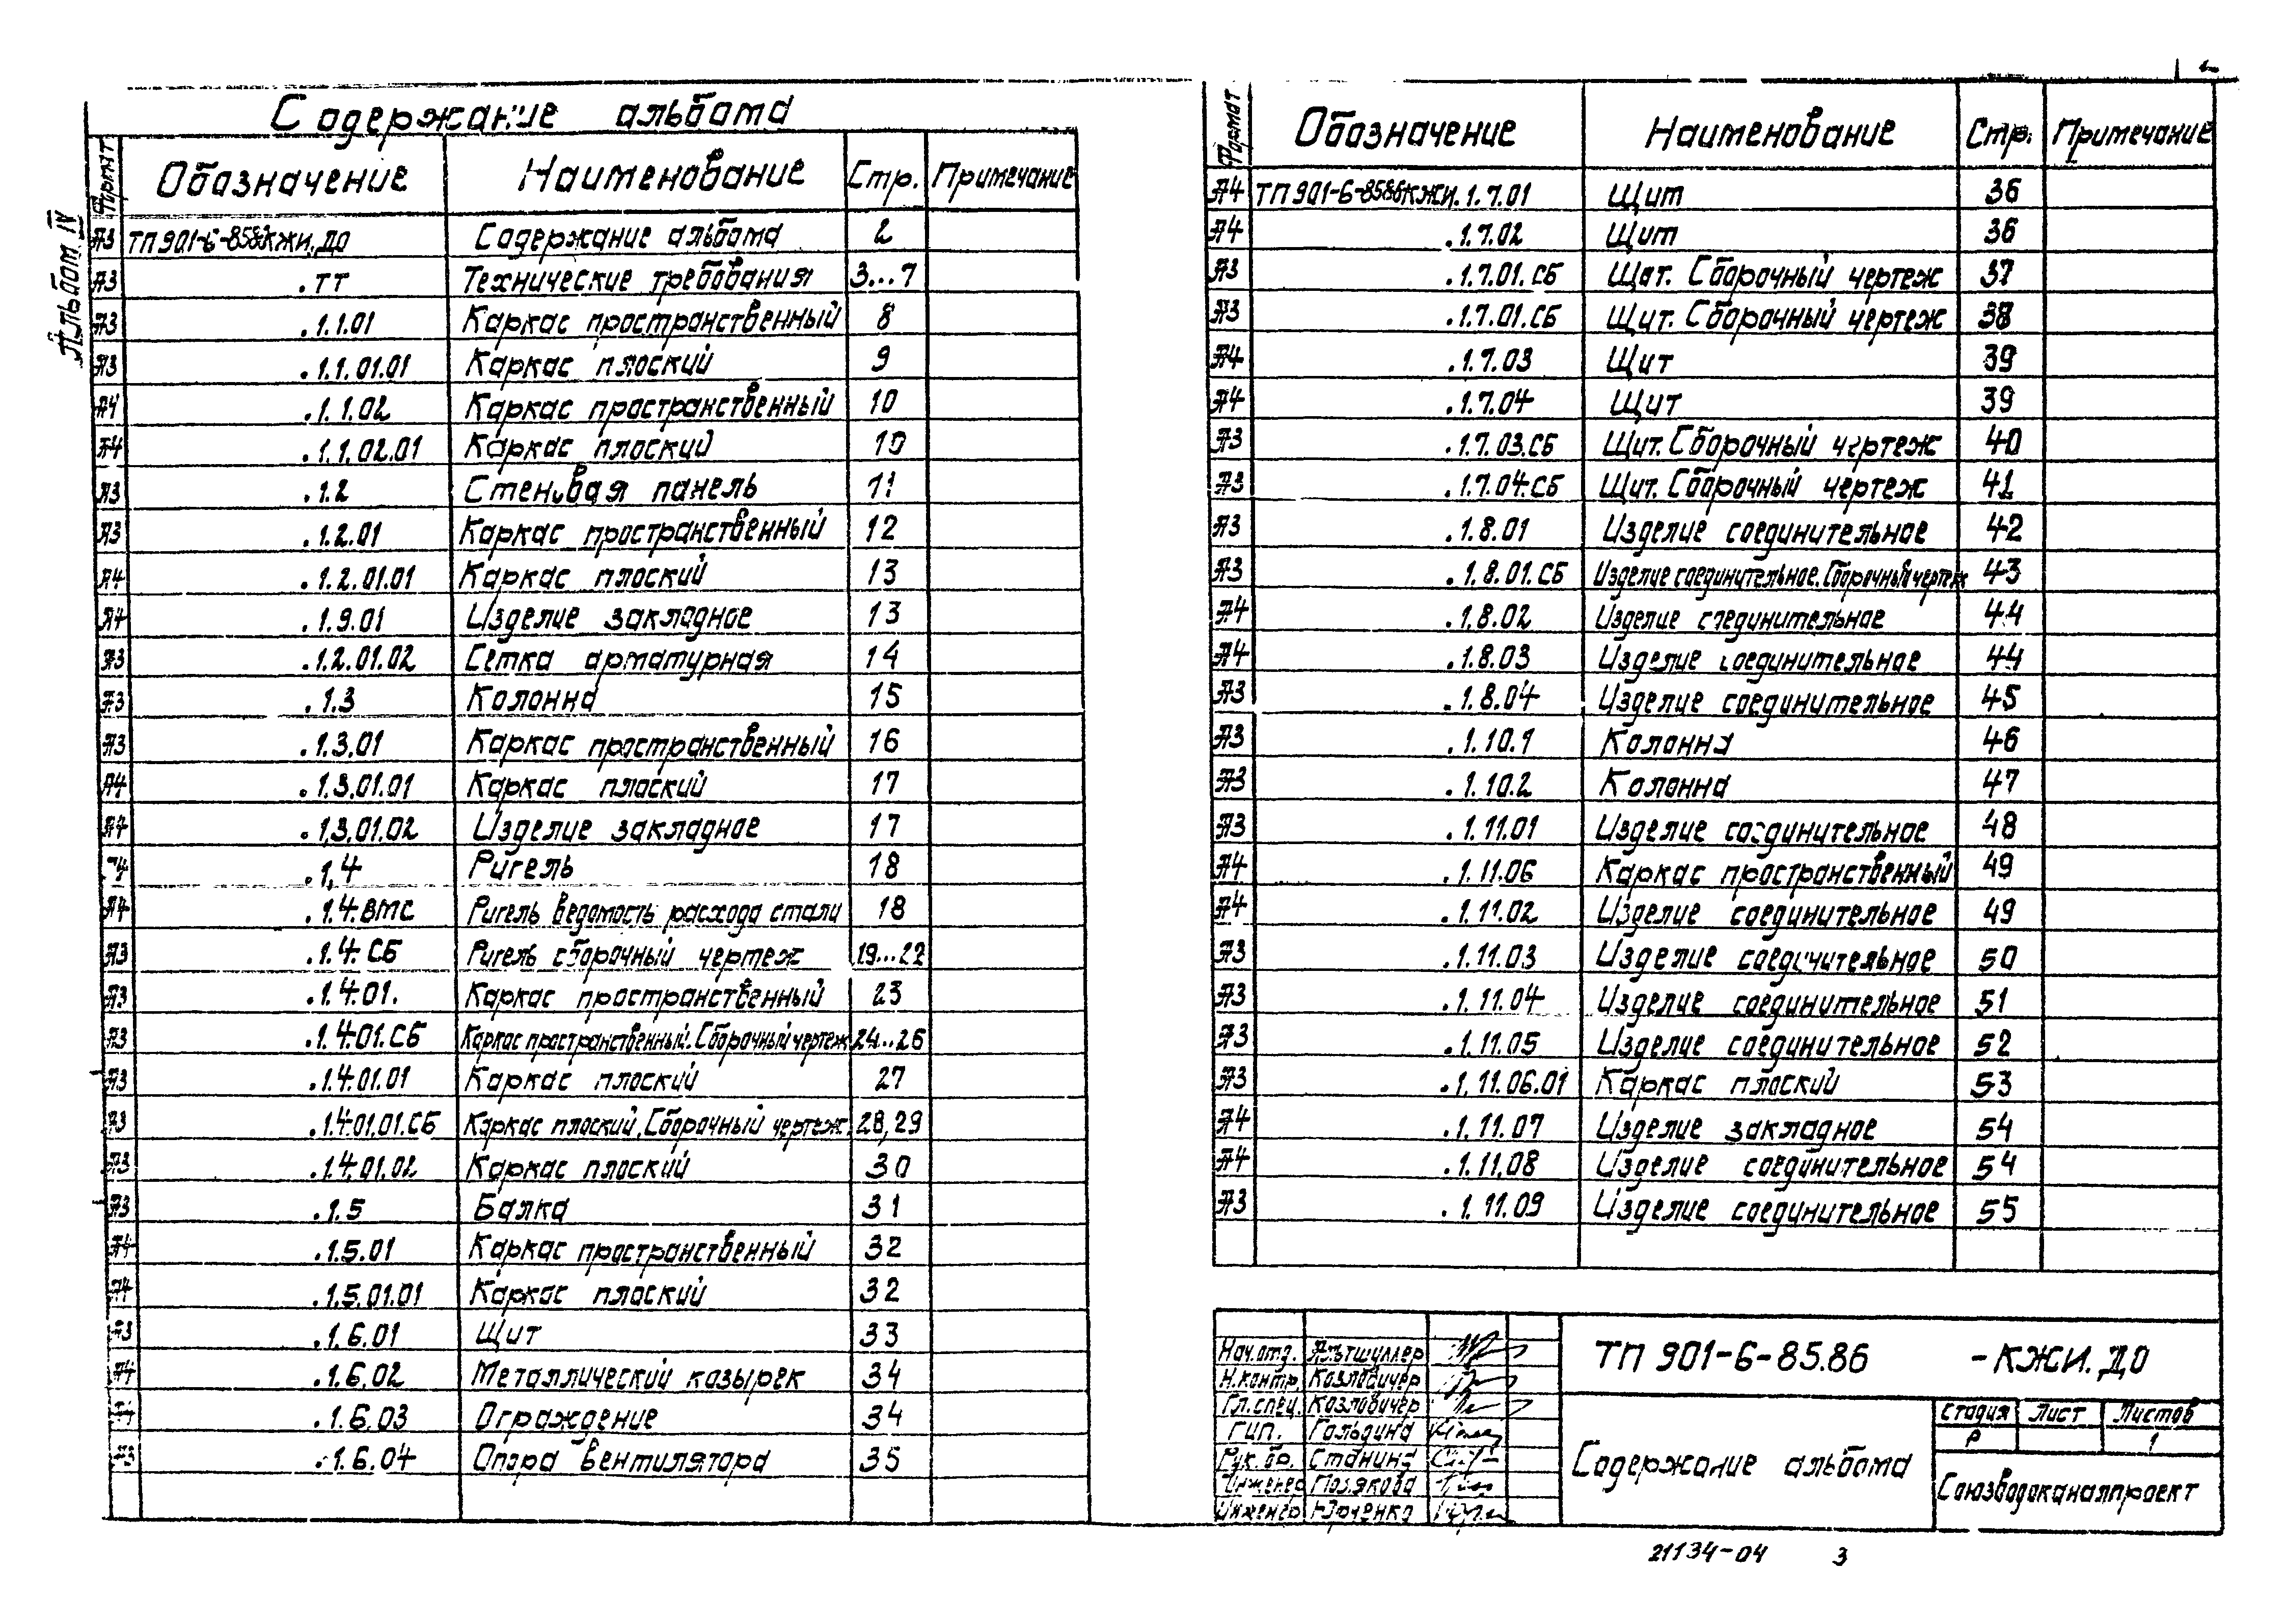 Содержание альбома
Альбом IV
Формат Обозначение Наименование Стр. Примечание
А3 ТП 901-6-8586КЖИ.ДО Содержание альбома 2
А3 .ТТ Технические требования 3...7
А3 .1.1.01 Каркас пространственный 8
А3 .1.1.01.01 Каркас плоский 9
А4 .1.1.02 Каркас пространственный 10
А4 .1.1.02.01 Каркас плоский 10
А3 .1.2 Стеновая панель 11
А3 .1.2.01 Каркас пространственный 12
А4 .1.2.01.01 Каркас плоский 13
А4 .1.9.01 Изделие закладное 13
А3 .1.2.01.02 Сетка арматурная 14
А3 .1.3 Колонна 15
А3 .1.3.01 Каркас пространственный 16
А4 .1.3.01.01 Каркас плоский 17
А4 .1.3.01.02 Изделие закладное 17
А4 .1.4 Ригель 18
А4 .1.4.ВМС Ригель ведомость расхода стали 18
А3 .1.4.СБ Ригель сборочный чертеж 19...22
А3 .1.4.01. Каркас пространственный 23
А3 .1.4.01.СБ Каркас пространственный. Сборочный чертеж 24...26
А3 .1.4.01.01 Каркас плоский 27
А3 .1.4.01.01.СБ Каркас плоский. Сборочный чертеж. 28,29
А3 .1.4.01.02 Каркас плоский 30
А3 .1.5 Балка 31
А4 .1.5.01 Каркас пространственный 32
А4 .1.5.01.01 Каркас плоский 32
А3 .1.6.01 Щит 33
А4 .1.6.02 Металлический козырек 34
А4 .1.6.03 Ограждение 34
А3 .1.6.04 Опора вентилятора 35
Формат Обозначение Наименование Стр. Примечание
А4 ТП 901-6-8586КЖИ.1.7.01 Щит 36
А4 .1.7.02 Щит 36
А3 .1.7.01.СБ Щит. Сборочный чертеж 37
А3 .1.7.01.СБ Щит. Сборочный чертеж 38
А4 .1.7.03 Щит 39
А4 .1.7.04 Щит 39
А3 .1.7.03.СБ Щит. Сборочный чертеж 40
А3 .1.7.04.СБ Щит. Сборочный чертеж 41
А3 .1.8.01 Изделие соединительное 42
А3 .1.8.01.СБ Изделие соединительное. Сборочный чертеж 43
А4 .1.8.02 Изделие соединительное 44
А4 .1.8.03 Изделие соединительное 44
А3 .1.8.04 Изделие соединительное 45
А3 .1.10.1 Колонна 46
А3 .1.10.2 Колонна 47
А3 .1.11.01 Изделие соединительное 48
А4 .1.11.06 Каркас пространственный 49
А4 .1.11.02 Изделие соединительное 49
А3 .1.11.03 Изделие соединительное 50
А3 .1.11.04 Изделие соединительное 51
А3 .1.11.05 Изделие соединительное 52
А3 .1.11.06.01 Каркас плоский 53
А4 .1.11.07 Изделие закладное 54
А4 .1.11.08 Изделие соединительное 54
А3 .1.11.09 Изделие соединительное 55
Нач.отд. Альтшуллер
Н.контр. Козловичер
Гл.спец. Козловичер
ГИП. Гольдина
Рук.бр. Станина
Инженер Полякова
Инженер Юрченко
ТП 901-6-85.86 -КЖИ.ДО
Содержание альбома
Стадия Лист Листов
Р 1
Союзводоканалпроект
21134-04 3